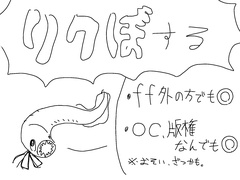 リクぼする
・ff外の方でも◎
・OC、版権
なんでも◎
※おそい、ざつかも。